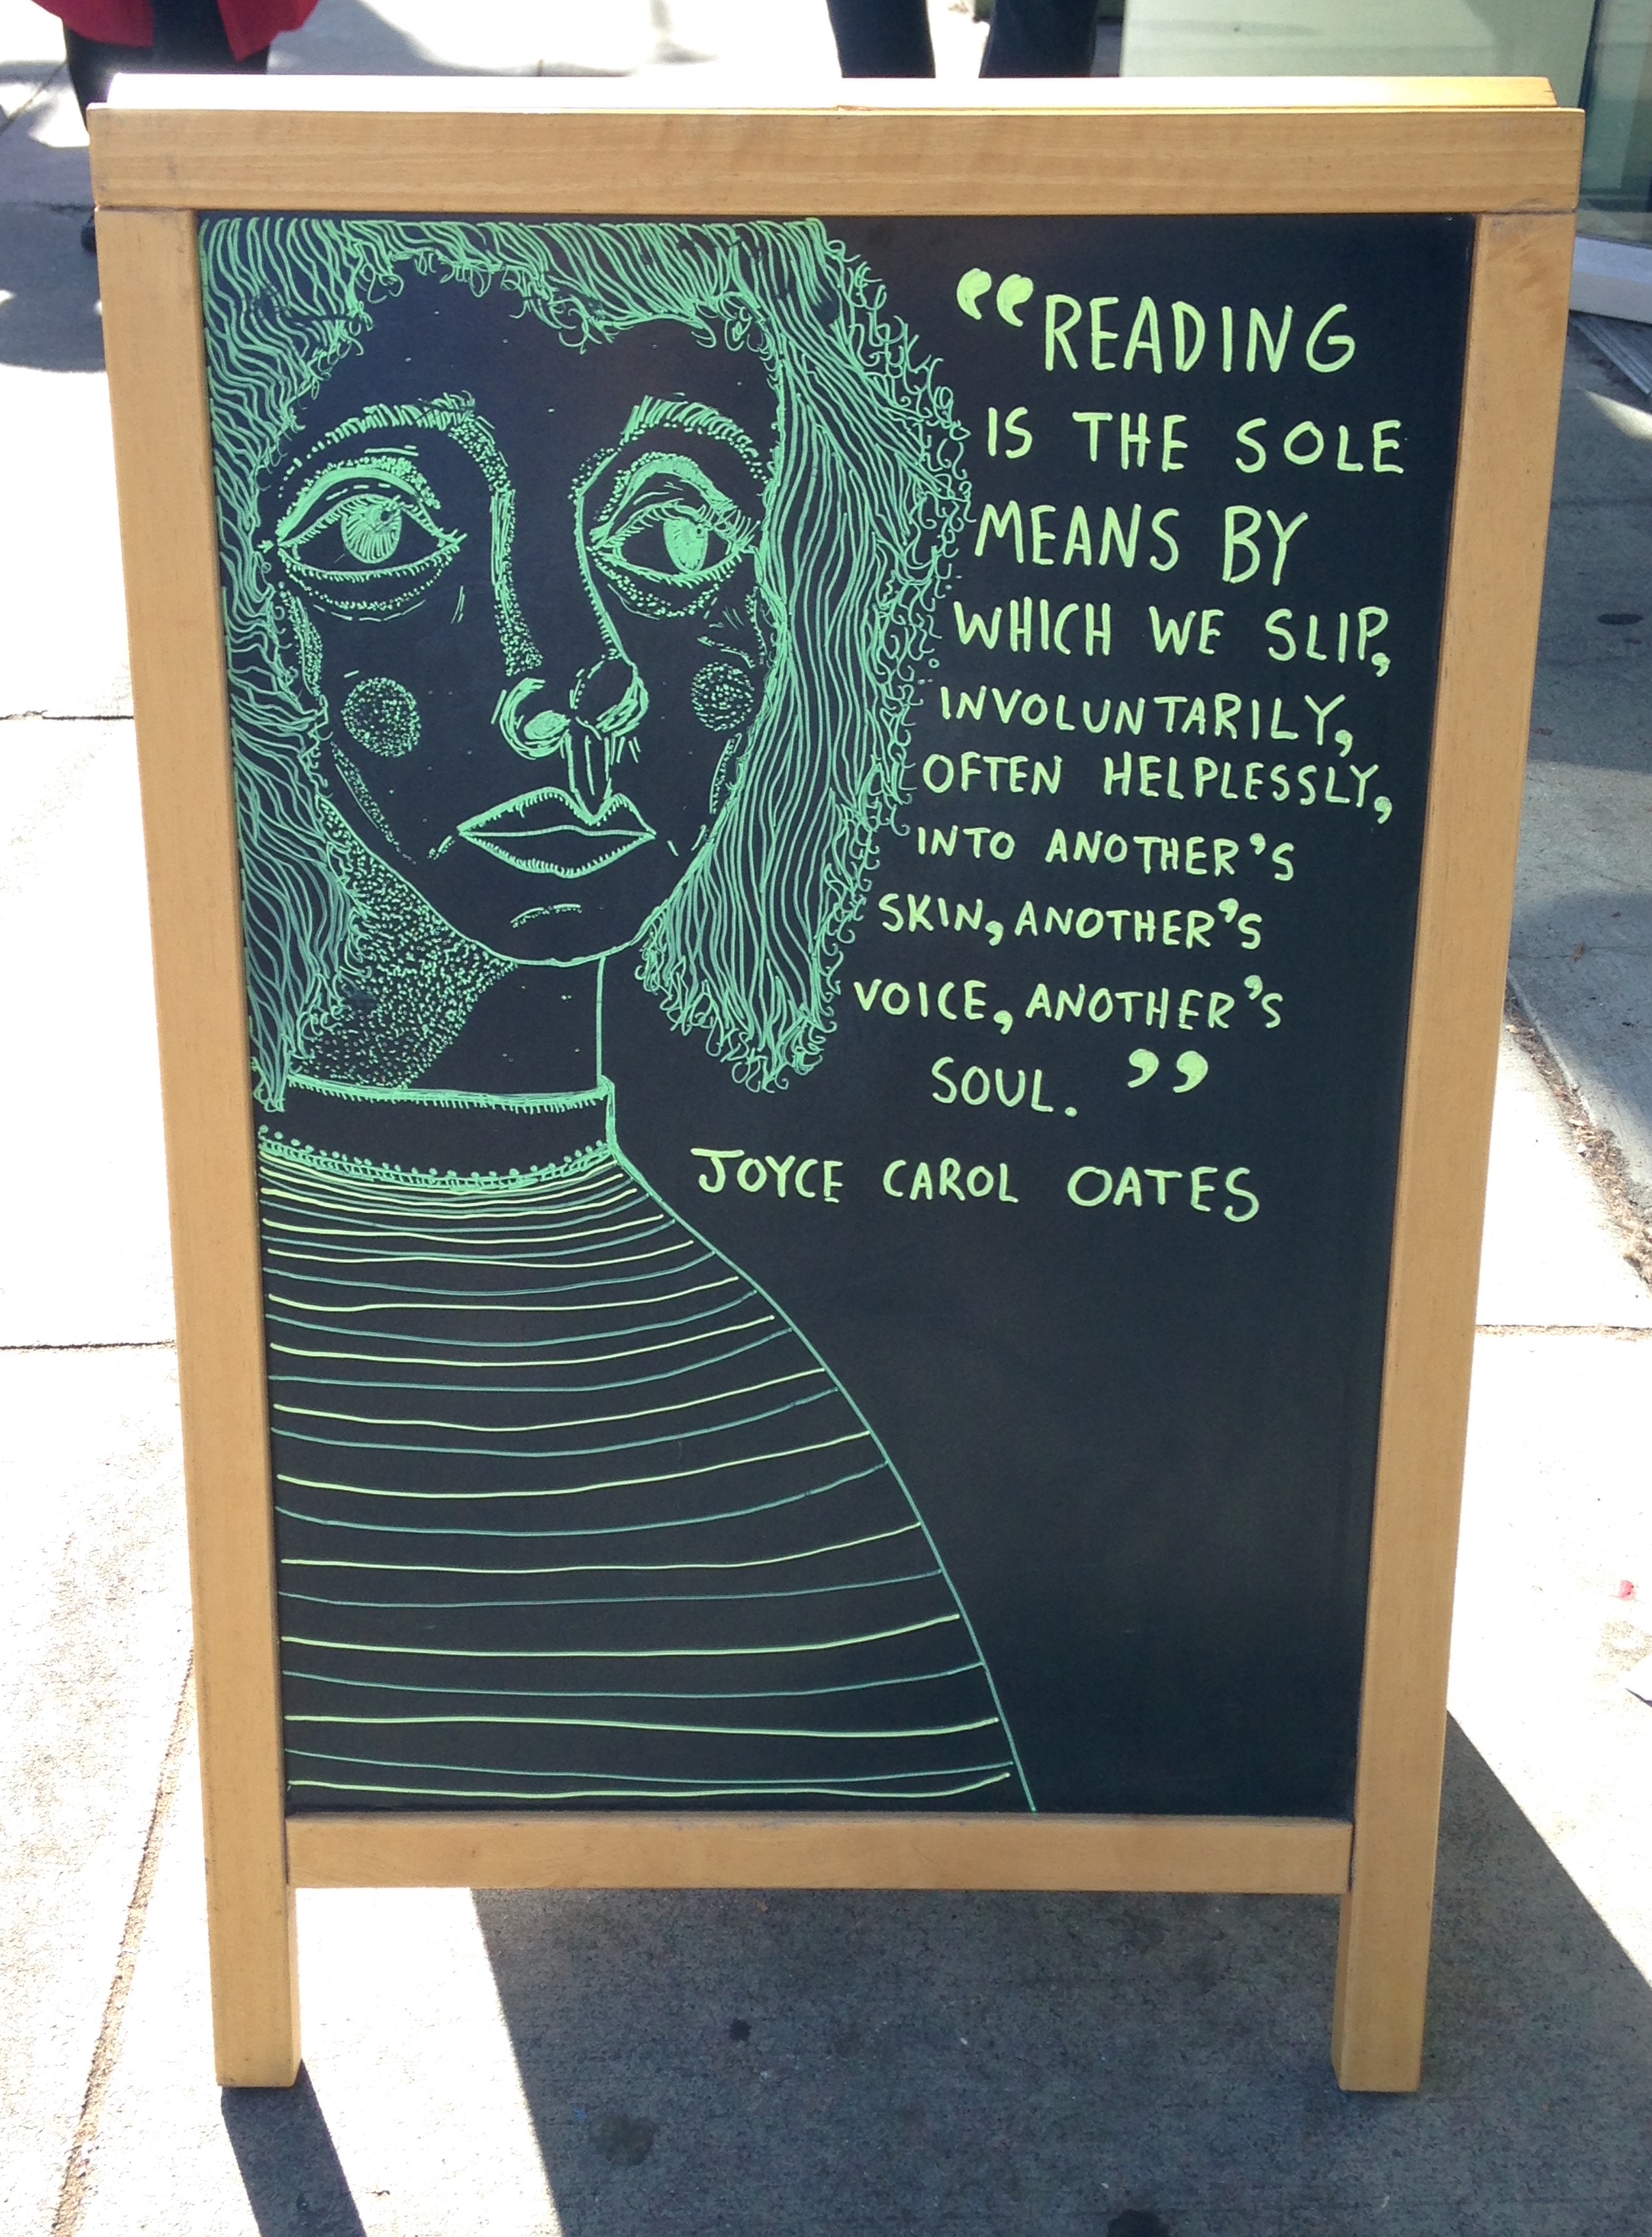 “READING
IS THE SOLE
MEANS BY
WHICH WE SLIP,
INVOLUNTARILY,
OFTEN HELPLESSLY,
INTO ANOTHER’S
SKIN, ANOTHER’S
VOICE, ANOTHER’S
SOUL.”
JOYCE CAROL OATES